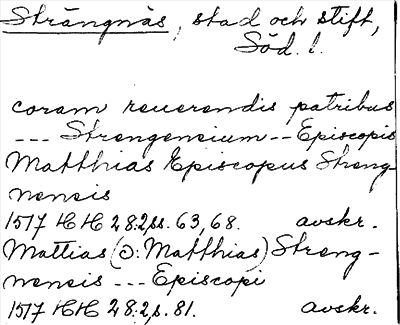 Strängnäs, stad och stift,
Söd. l.
coram reuerendis patribus
--- Strengensium -- Episcopis
Matthias Episcopus Streng-
nensis
1517 HH 28:2, s. 63, 68. avskr.
Mattias (ɔ: Matthias) Streng-
nensis --- Episcopi
1517 HH 28:2, s. 81. avskr.